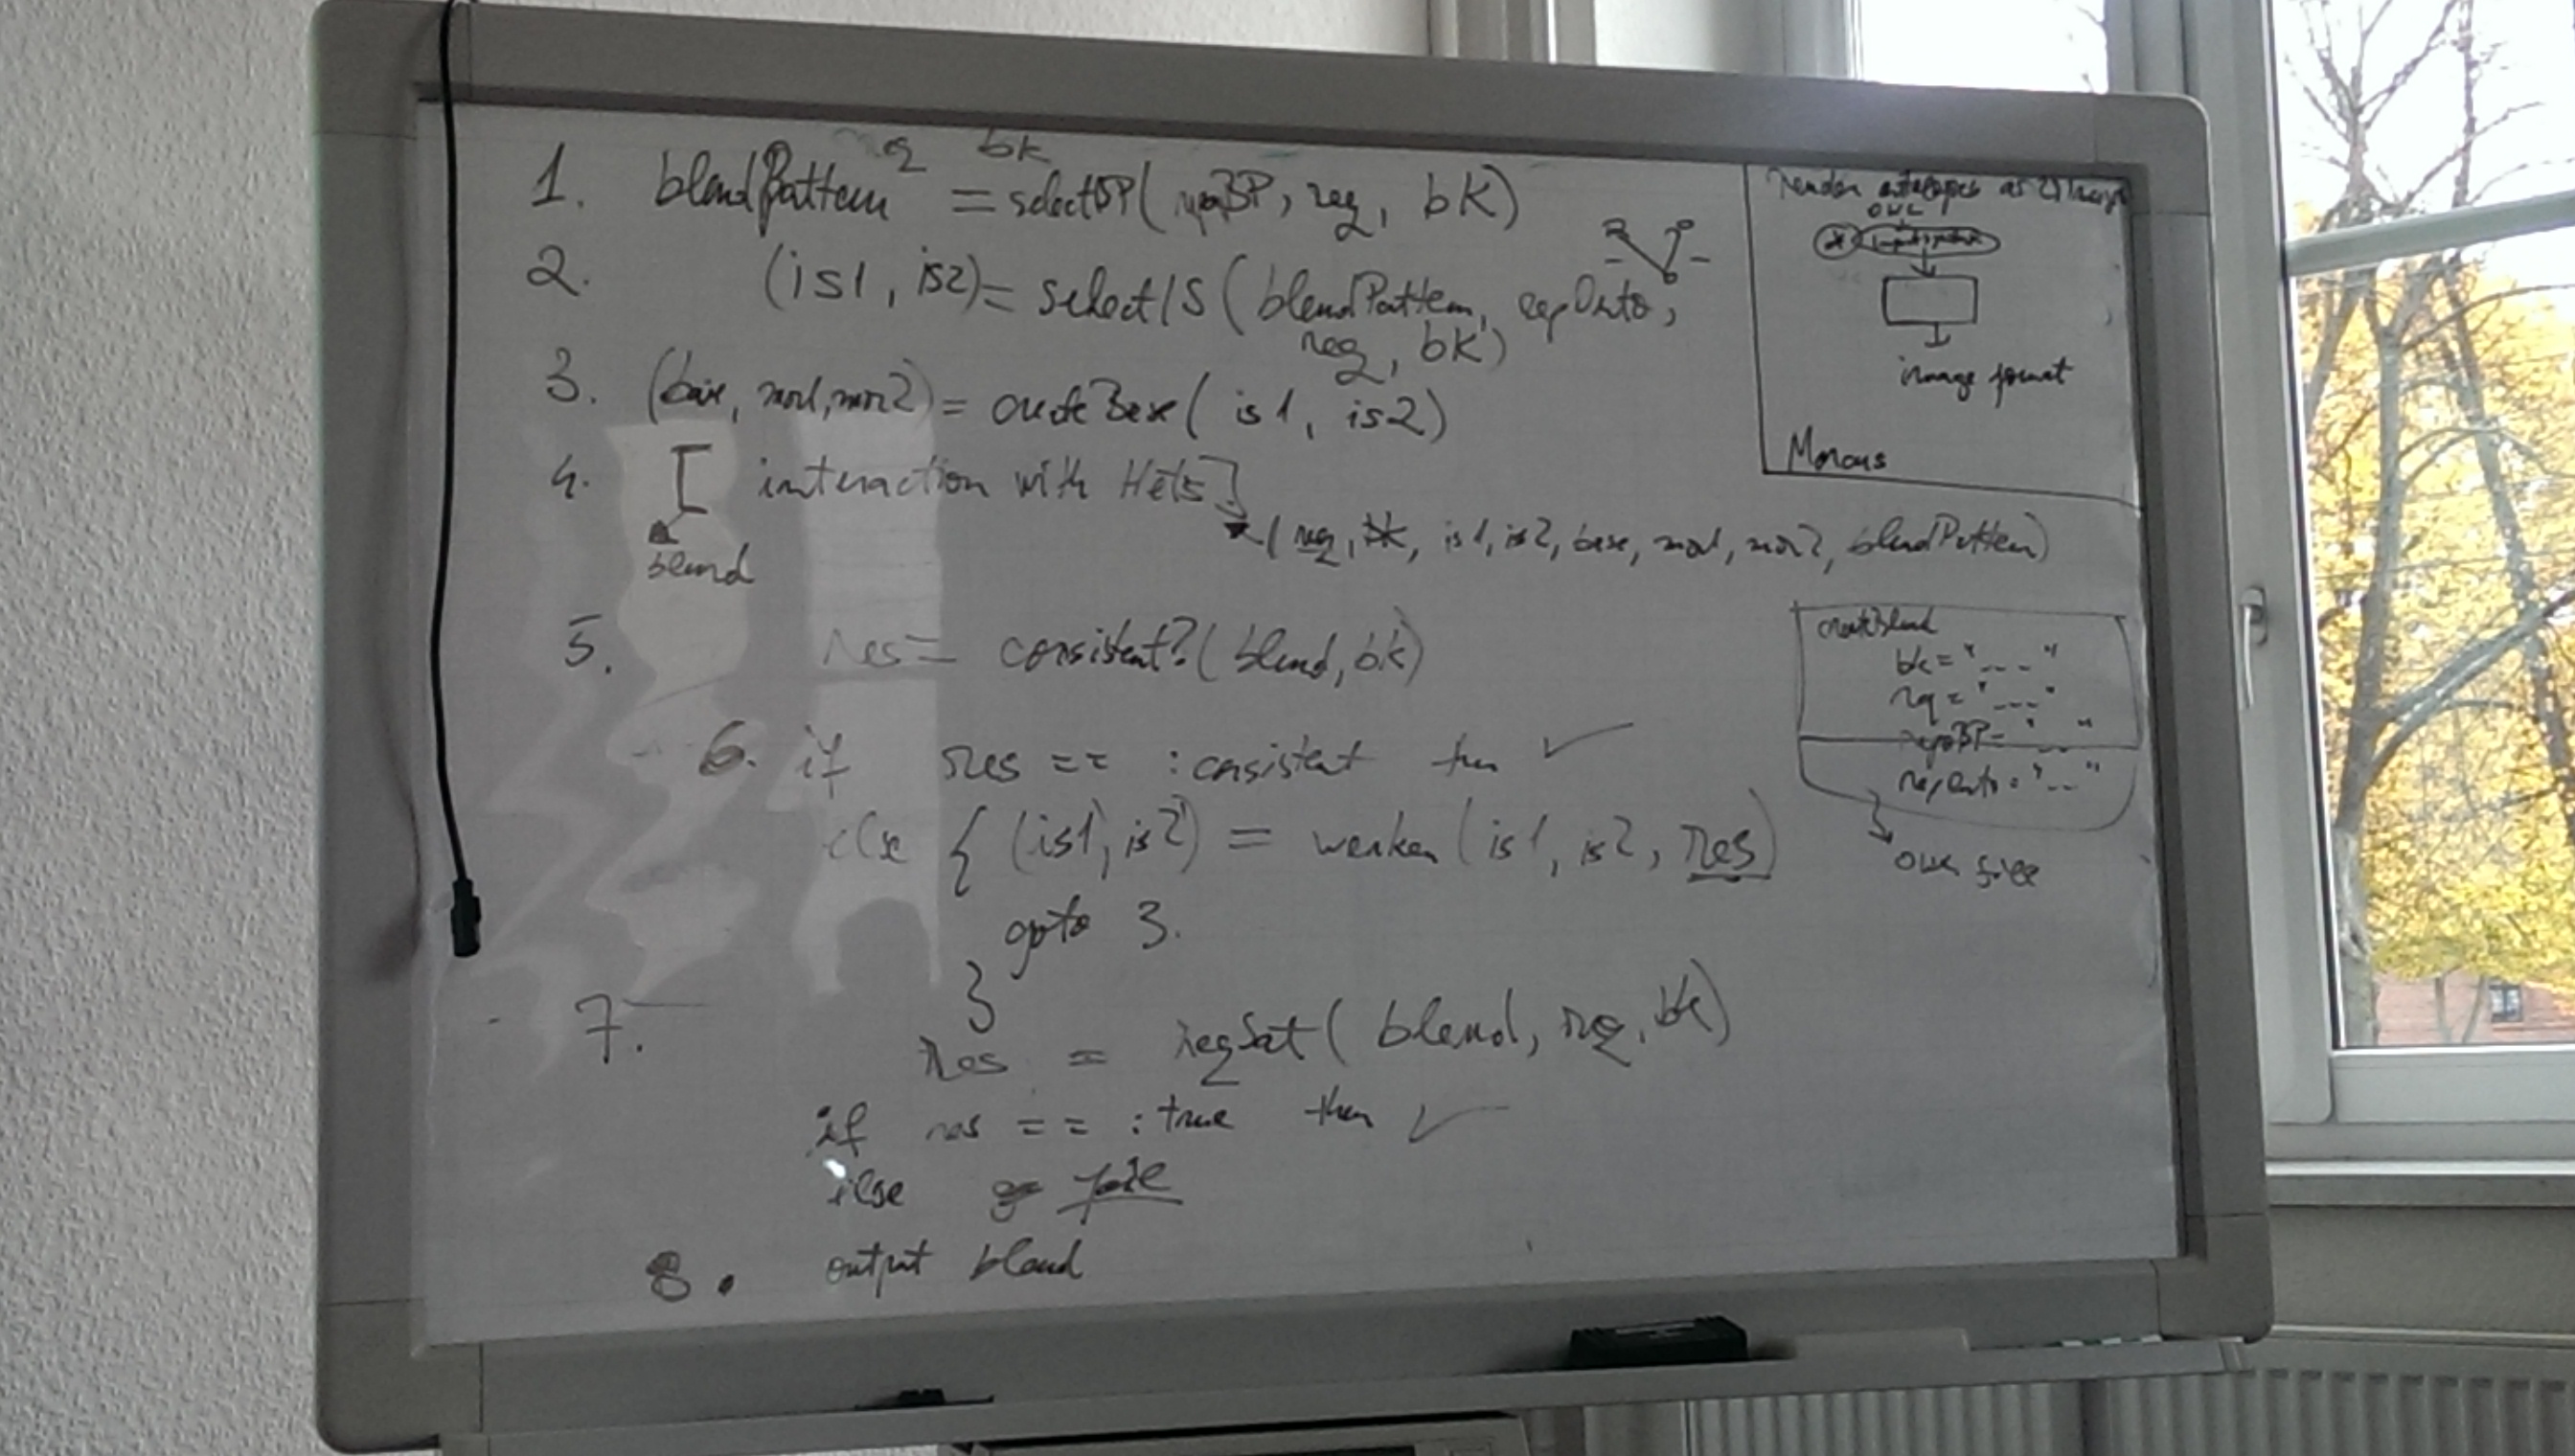 req bk
1. blendPattern = selectBP(repoBP, req, bk)
2. (is1, is2) = selectIS(blendPattern, repOnto,
req, bk)
3. (base, mor1, mor2) = createBase(is1, is2)
4. [interaction with Hets]
(req, is1, is2, base, mor1, mor2, blendPattern)
blend
5. res = consistent?(blend, bk)
6. if res == :consistent then ✓
else { (is1', is2') = weaken(is1, is2, res)
goto 3.
}
7. res = reqSat(blend, req, bk)
if res == :true then ✓
else fail
8. output blend
render ontologies as
OWL
image format
createBlend
bk = "---"
rq = "---"
repoBP = "--"
repOnto = "--"
OWL file